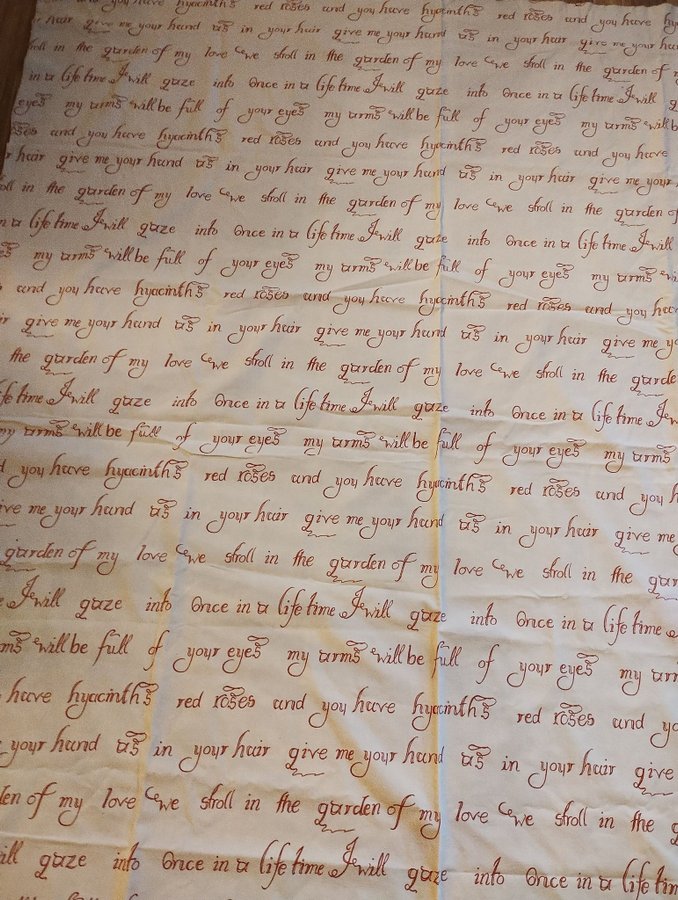 you have hyacinths red roses and you have hyacinths red roses and you have
hair give me your hand as in your hair give me your hand as in your hair give me your hair
stroll in the garden of my love we stroll in the garden of my love we stroll in the garden of
in a life time I will gaze into Once in a life time I will gaze into Once in a life time I will
eyes my arms will be full of your eyes my arms will be full of your eyes my arms will b
roses and you have hyacinths red roses and you have hyacinths red roses and you have
r hair give me your hand as in your hair give me your hand as in your hair give me your
oll in the garden of my love we stroll in the garden of my love we stroll in the garden of
n a life time I will gaze into Once in a life time I will gaze into Once in a life time I will
es my arms will be full of your eyes my arms will be full of your eyes my arms wi
s and you have hyacinths red roses and you have hyacinths red roses and you have
ir give me your hand as in your hair give me your hand as in your hair give me yo
the garden of my love we stroll in the garden of my love we stroll in the garde
life time I will gaze into Once in a life time I will gaze into Once in a life time I w
my arms will be full of your eyes my arms will be full of your eyes my arms
d you have hyacinths red roses and you have hyacinths red roses and you h
ive me your hand as in your hair give me your hand as in your hair give me
garden of my love we stroll in the garden of my love we stroll in the gar
e I will gaze into Once in a life time I will gaze into Once in a life time
ms will be full of your eyes my arms will be full of your eyes my arm
have hyacinths red roses and you have hyacinths red roses and yo
your hand as in your hair give me your hand as in your hair give
den of my love we stroll in the garden of my love we stroll in the g
ill gaze into Once in a life time I will gaze into Once in a life tim